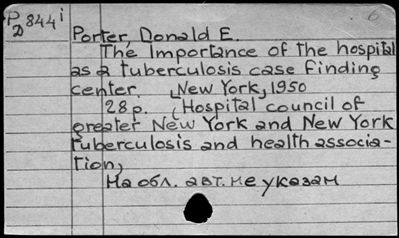 P
D 844 i
6
Porter, Donald E.
The Importance of the hospital
as a tuberculosis case finding
center. [New York, 1950
28p. (Hospital council of
greater New York and New York
tuberculosis and health associa-
tion)
На обл. авт. не указан